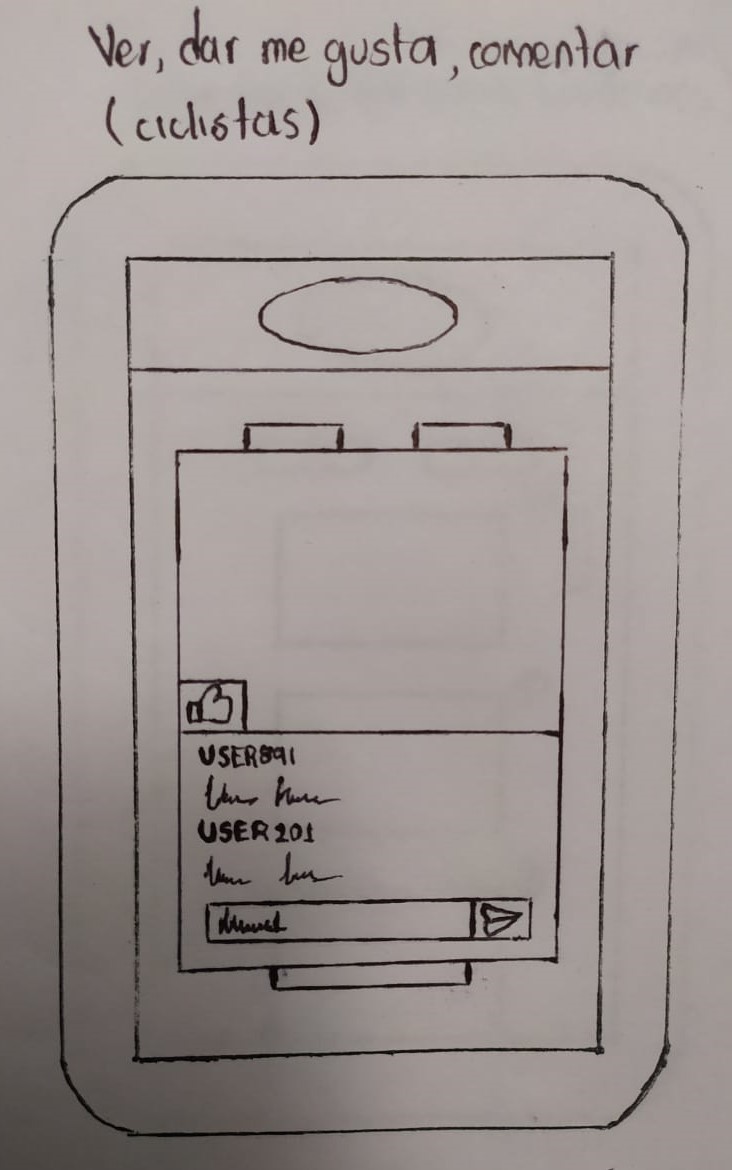 Ver, dar me gusta, comentar
(ciclistas)
USER891
USER201